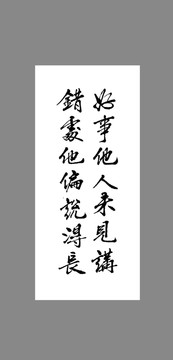 好事他人未見講
錯處他偏說得長